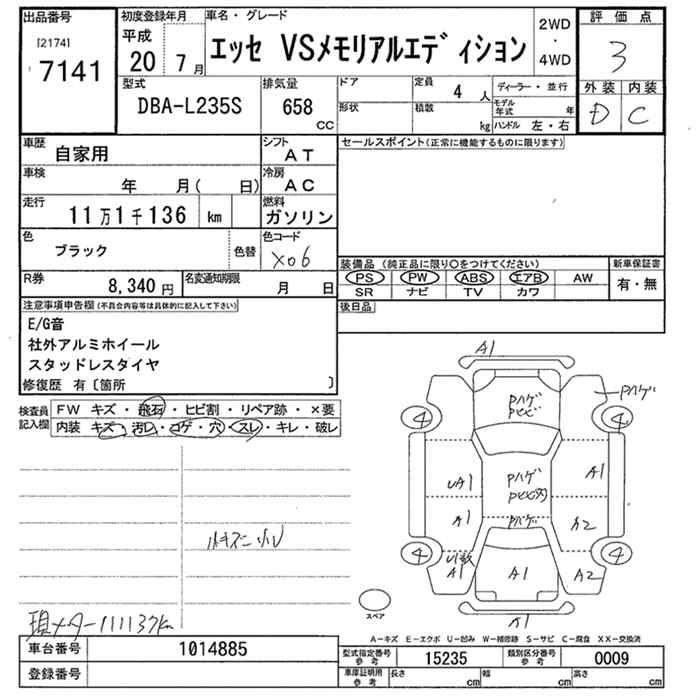 出品番号
[2174]
7141
初度登録年月
平成
20年 7月
車名・グレード
エッセ VSメモリアルエディション
2WD
・
4WD
評価点
3
外装 内装
D C
型式
DBA-L235S
排気量
658
CC
ドア
形状
定員
4人
積数
kg
ディーラー・並行
モデル年式 年
ハンドル 左・右
車歴
自家用
シフト
AT
車検
年 月( 日)
冷房
AC
走行
11万1千136 km
燃料
ガソリン
色
ブラック
色替
色コード
X06
R券
8,340円
名変通知期限
月 日
セールスポイント(正常に機能するものに限ります)
装備品 (純正品に限り〇をつけてください)
PS PW ABS エアB AW
SR ナビ TV カワ
新車保証書
有・無
後日品
注意事項申告欄(不具合内容等は具体的に記入して下さい)
E/G音
社外アルミホイール
スタッドレスタイヤ
修復歴 有〔箇所 〕
検査員
記入欄
FW キズ・飛石・ヒビ割・リペア跡・×要
内装 キズ・汚レ・コゲ・穴・スレ・キレ・破レ
A1
Pハゲ
Pヒビ
Pハゲ
4 4
UA1
Pハゲ
A1
A1
Pハゲ
A2
4 4
A1
A1
A2
スペア
A1
現メーター111137km
A-キズ E-エクボ U-凹み W-補修跡 S-サビ C-腐食 XX-交換済
車台番号 1014885
登録番号
型式指定番号
参考
15235
類別区分番号
参考
0009
車庫証明用
参考
長さ cm 幅 cm 高さ cm